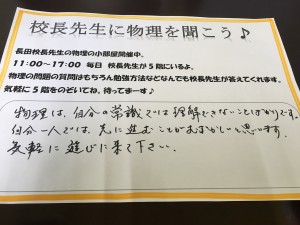 校長先生に物理を聞こう♪
長田校長先生の物理の小部屋開催中。
11:00～17:00 毎日 校長先生が5階にいるよ。
物理の問題の質問はもちろん勉強方法などなんでも校長先生が答えてくれます。
気軽に5階をのぞいてね。待ってまーす♪
物理は、自分の常識では理解できないことばかりです。
自分一人では、先に進むことがむずかしいと思います。
気軽に遊びに来て下さい。